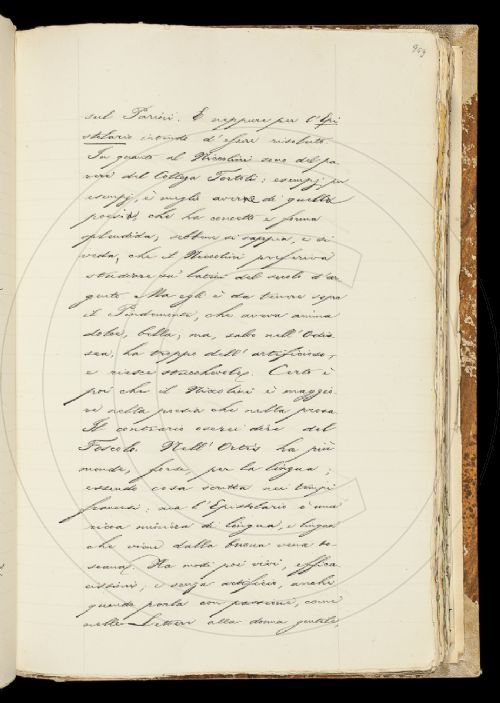 959
sul Parini. E neppure per l'Epi
stolario intende d'essere risoluto.
In quanto al Niccolini sono del pa-
rere del Collega Tortoli: esempj per
esempj, è meglio averne di quelle
poesie, che ha concetto e forma
splendida, sebbene si sappia, e si
veda, che il Niccolini preferiva
studiare ne' latini del secolo d'ar
gento. Ma egli è da tenere sopra
il Pindemonte, che aveva anima
dolce, bella; ma, salvo nell'
ha troppo dell'artificioso,
e riesce stucchevole. Certo è
poi che il Niccolini è maggio
re nella poesia che nella prosa.
Il contrario oserei dire del
Foscolo. Nell'Ortis ha più
monde, forse, per la lingua;
essendo cosa scritta nei tempi
francesi: ma l'Epistolario è una
ricca miniera di lingua, e lingua
che viene dalla buona vena to
scana. Ha modi poi vivi, effica
cissimi, e senza artifizio, anche
quando parla con passione, come
nelle Lettere alla donna gentile,